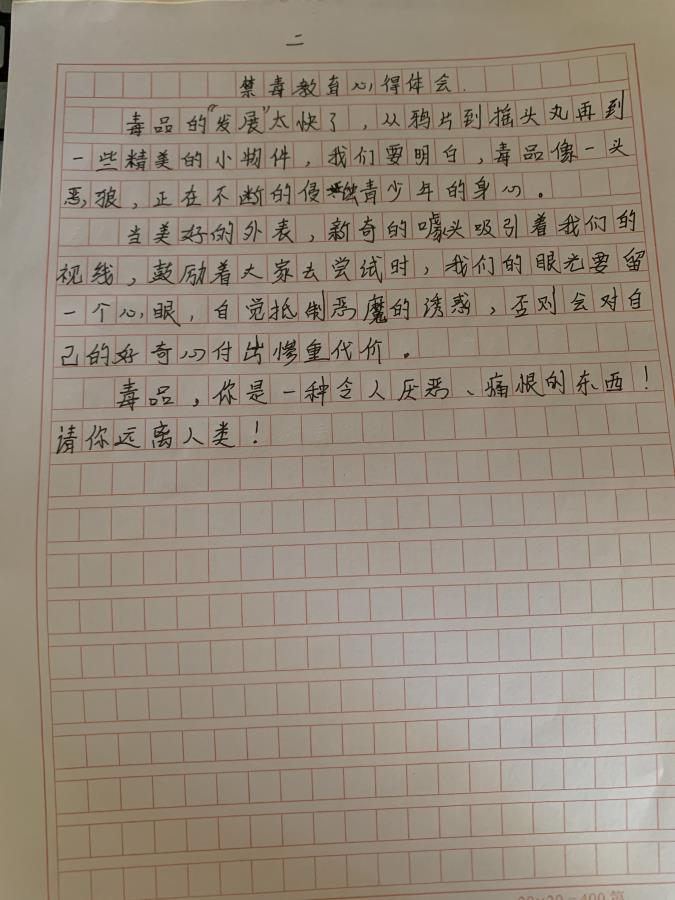 二
禁毒教育心得体会.
毒品的“发展”太快了，从鸦片到摇头丸再到
一些精美的小物件，我们要明白，毒品像一头
恶狼，正在不断的侵蚀青少年的身心。
当美好的外表，新奇的噱头吸引着我们的
视线，鼓励着大家去尝试时，我们的眼光要留
一个心眼，自觉抵制恶魔的诱惑，否则会对自
己的好奇心付出惨重代价。
毒品，你是一种令人厌恶、痛恨的东西！
请你远离人类！
20×20=400 第